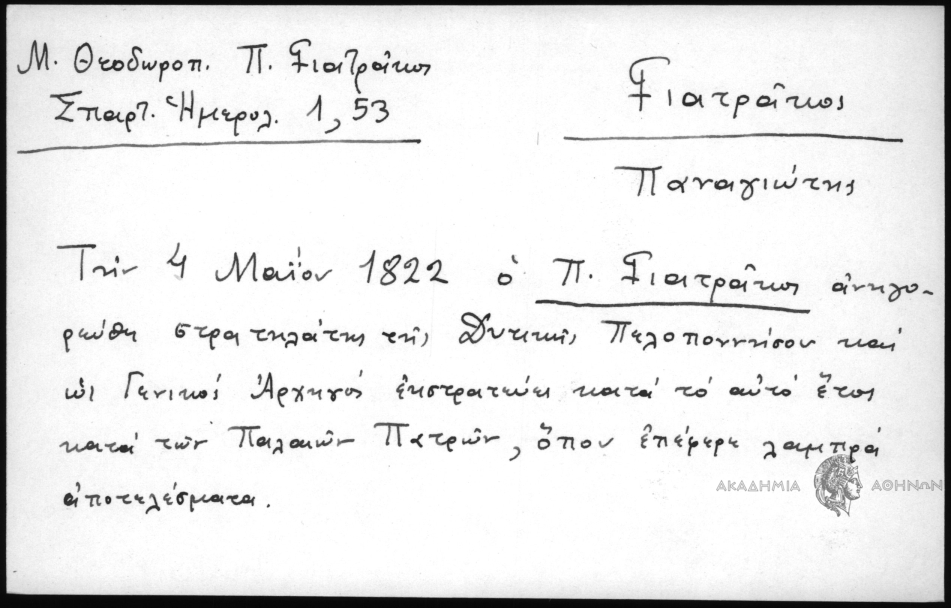 Μ. Θεοδωροπ. Π. Γιατρᾶκος
Σπαρτ. Ἡμερολ. 1, 53
Γιατρᾶκος
Παναγιώτης
Τήν 4 Μαΐου 1822 ὁ Π. Γιατρᾶκος ἀνηγο-
ρεύθη στρατηλάτης τῆς Δυτικῆς Πελοποννήσου καί
ὡς Γενικός Ἀρχηγός ἐκστρατεύει κατά τό αὐτό ἔτος
κατά τῶν Παλαιῶν Πατρῶν, ὅπου ἐπέφερε λαμπρά
ἀποτελέσματα.
ΑΚΑΔΗΜΙΑ ΑΘΗΝΩΝ